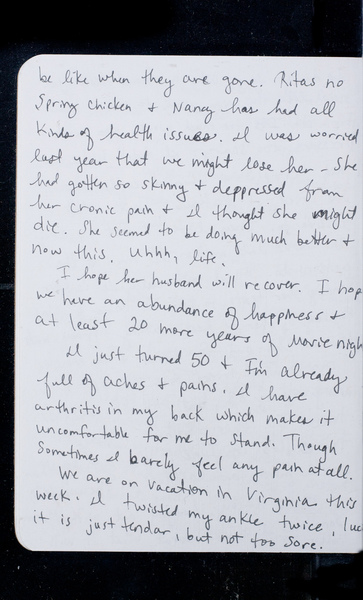 be like when they are gone. Ritas no
Spring chicken & Nancy has had all
kinds of health issues. I was worried
last year that we might lose her - She
had gotten so skinny & deppressed from
her cronic pain & I thought she might
die. She seemed to be doing much better &
now this. Uhhh, life.
I hope her husband will recover. I hop
we have an abundance of happiness &
at least 20 more years of Movie nigh
I just turned 50 & I'm already
full of aches & pains. I have
arthritis in my back which makes it
uncomfortable for me to stand. Though
Sometimes I barely feel any pain at all.
We are on vacation in Virginia this
week. I twisted my ankle twice, luc
it is just tendar, but not too sore.